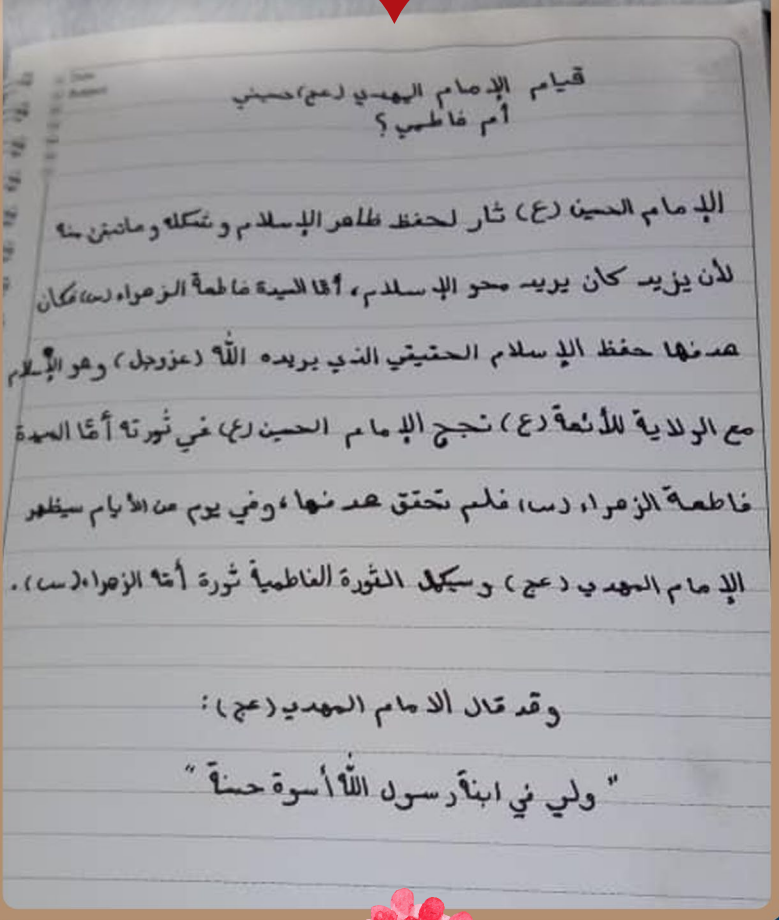 قيام الإمام المهدي (عج) حسيني
أم فاطمي؟
الإمام الحسين (ع) ثار لحفظ ظاهر الإسلام وشكله وماتبقى منه
لأن يزيد كان يريد محو الإسلام، أمّا السيدة فاطمة الزهراء (س) فكان
هدفها حفظ الإسلام الحقيقي الذي يريده اللّه (عزوجل) وهو الإسلام
مع الولاية للأئمة (ع) نجح الإمام الحسين (ع) في ثورته أمّا السيدة
فاطمة الزهراء (س) فلم تحقق هدفها، وفي يوم من الأيام سيظهر
الإمام المهدي (عج) وسيكمل الثورة الفاطمية ثورة أمّه الزهراء (س).
وقد قال الامام المهدي (عج):
"ولي في ابنة رسول اللّه أسوة حسنة"